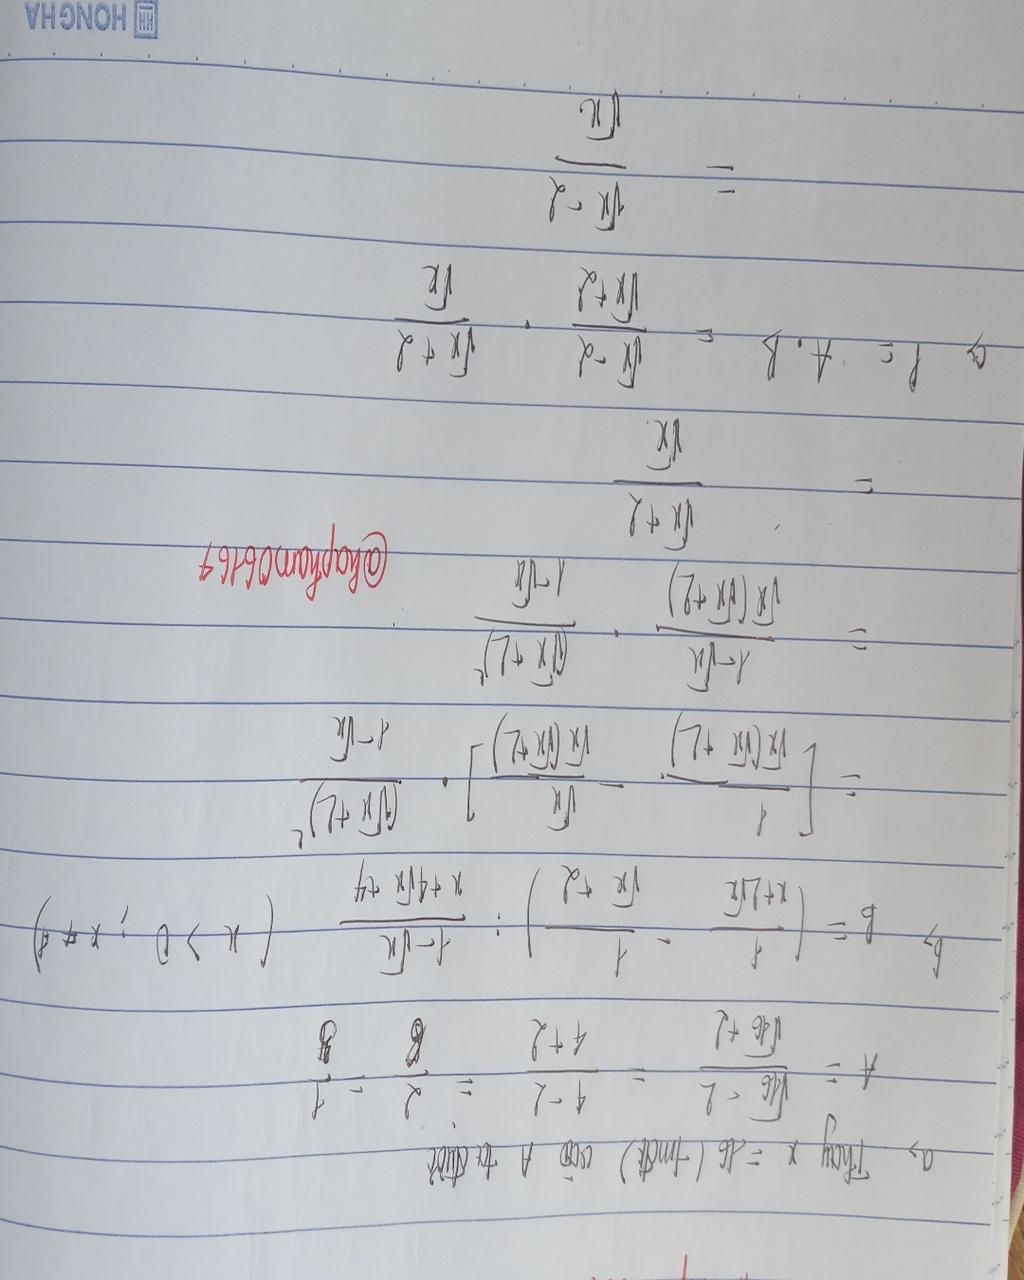 a, Thay x = 16 (tmđk) vào A ta được
A = (√16 - 2)/(√16 + 2) = (4 - 2)/(4 + 2) = 2/6 = 1/3
b, B = (1/(x + 2√x) - 1/(√x + 2)) : (1 - √x)/(x + 4√x + 4) (x > 0 ; x ≠ 1)
= [1/(√x(√x + 2)) - √x/(√x(√x + 2))] · (√x + 2)²/(1 - √x)
= (1 - √x)/(√x(√x + 2)) · (√x + 2)²/(1 - √x)
@hapham06167
= (√x + 2)/√x
c, P = A . B = (√x - 2)/(√x + 2) · (√x + 2)/√x
= (√x - 2)/√x
HH HONG HA